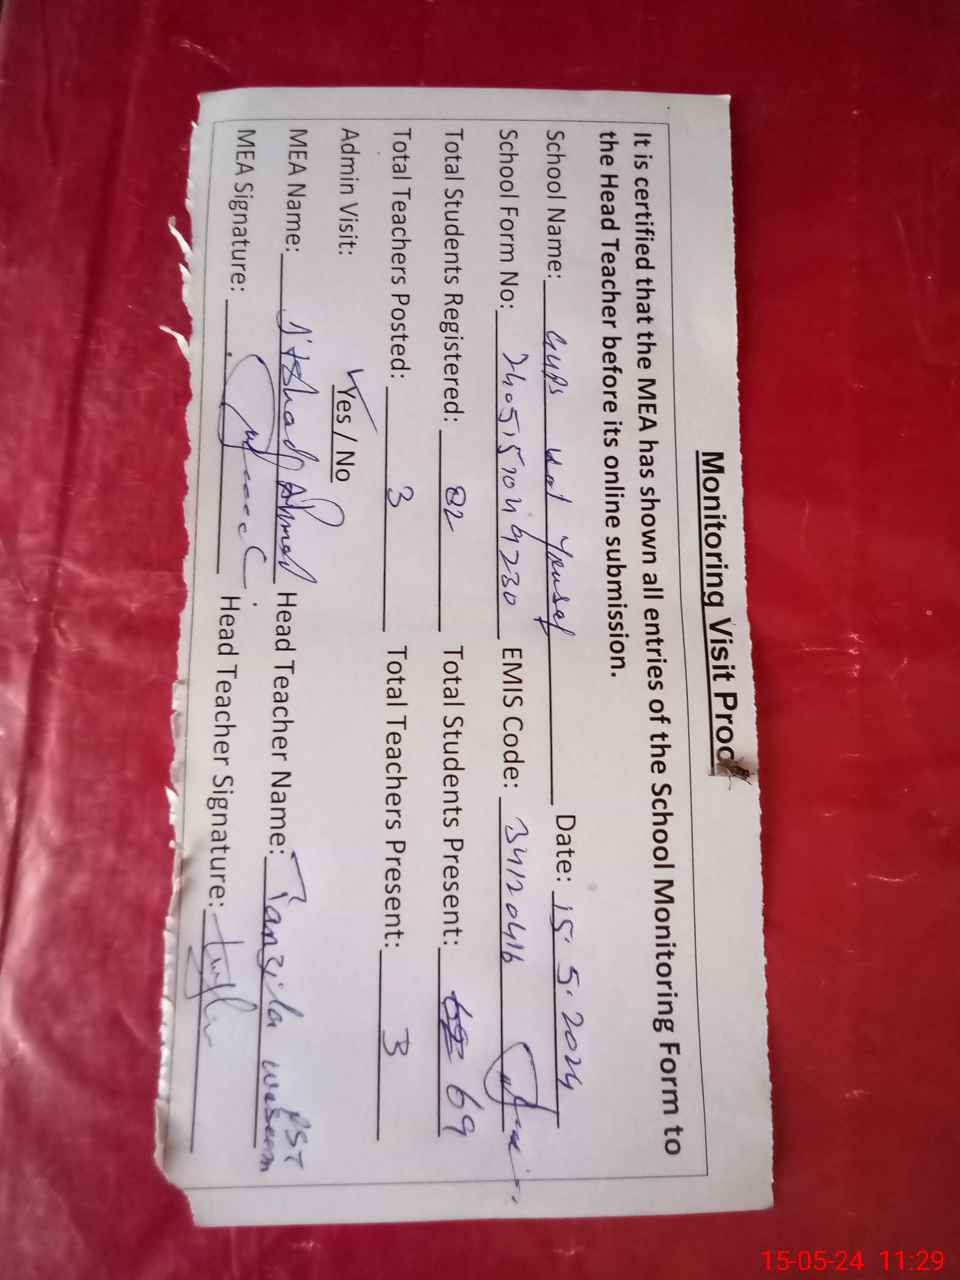 Monitoring Visit Proo
It is certified that the MEA has shown all entries of the School Monitoring Form to
the Head Teacher before its online submission.
School Name: GGPS Kot Yousaf Date: 15.5.2024
School Form No: EMIS Code: 34120416
Total Students Registered: 82 Total Students Present: 69
Total Teachers Posted: 3 Total Teachers Present: 3
Admin Visit: Yes / No
MEA Name: Ahmed Head Teacher Name: Tanzila waseem PST
MEA Signature: Head Teacher Signature:
15-05-24 11:29